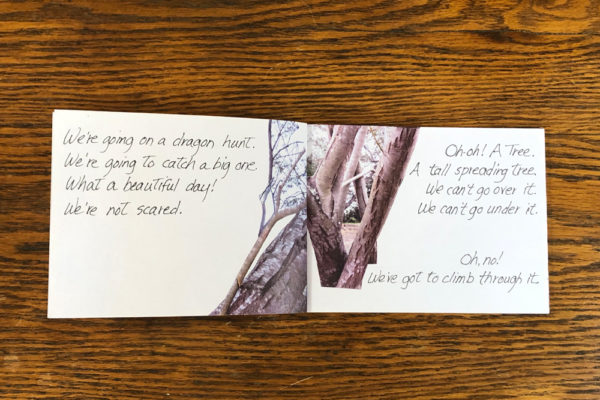 We're going on a dragon hunt.
We're going to catch a big one.
What a beautiful day!
We're not scared.
Oh-oh! A Tree.
A tall spreading tree.
We can't go over it.
We can't go under it.
Oh, no!
We've got to climb through it.